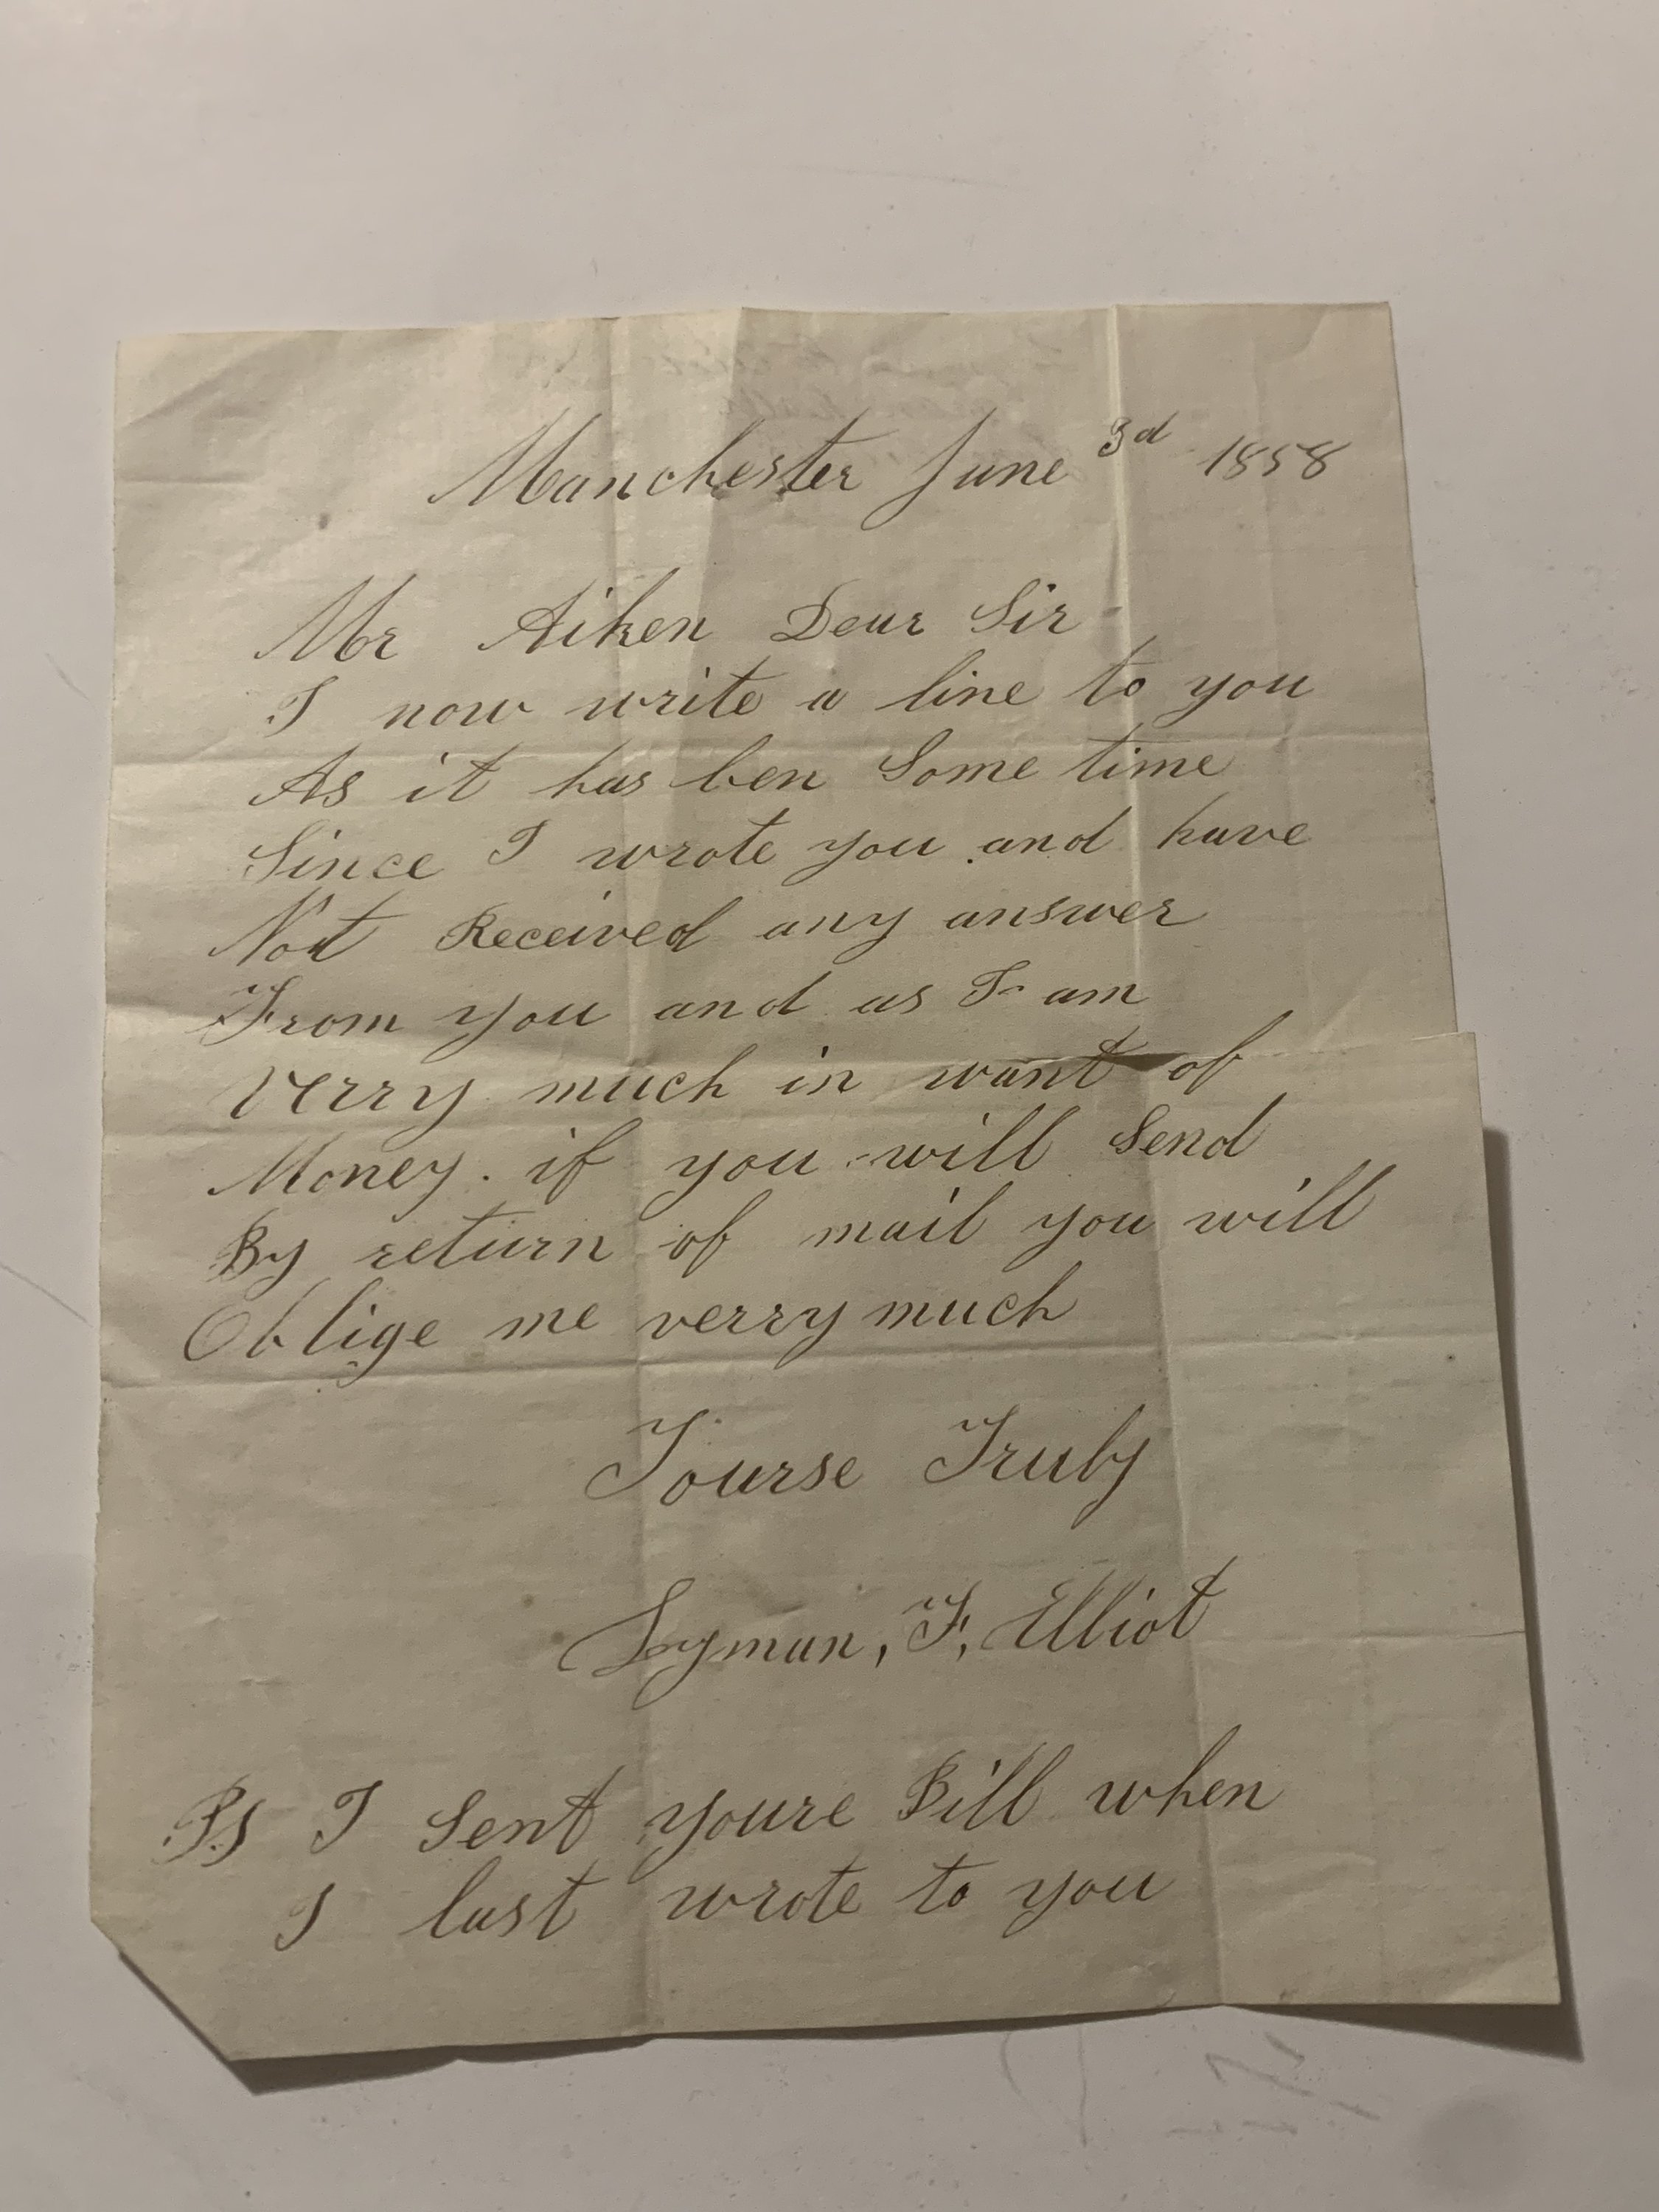 Manchester June 3d 1858
Mr Aiken Dear Sir
I now write a line to you
As it has ben Some time
Since I wrote you and have
Not Received any answer
From you and as I am
Verry much in want of
Money. if you will Send
By return of mail you will
Oblige me verry much
Yourse Truly
Lyman, F, Elliot
Ps I Sent youre Bill when
I last wrote to you